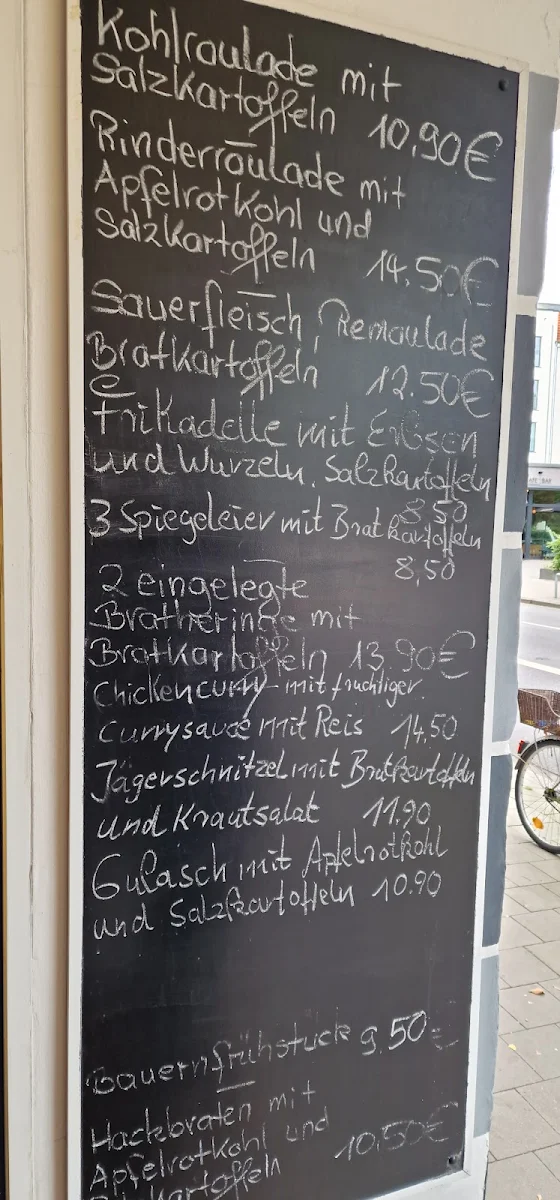 Kohlroulade mit
Salzkartoffeln 10,90€
Rinderroulade mit
Apfelrotkohl und
Salzkartoffeln 14.50€
Sauerfleisch, Remoulade
Bratkartoffeln 12.50€
Frikadelle mit Erbsen
und Wurzeln, Salzkartoffeln
8,50
3 Spiegeleier mit Bratkartoffeln
8,50
2 eingelegte
Bratheringe mit
Bratkartoffeln 13.90€
Chickencurry mit fruchtiger
Currysauce mit Reis 14,50
Jägerschnitzel mit Bratkartoffeln
und Krautsalat 11.90
Gulasch mit Apfelrotkohl
und Salzkartoffeln 10.90
Bauernfrühstück 9.50€
Hackbraten mit
Apfelrotkohl und 10,50€